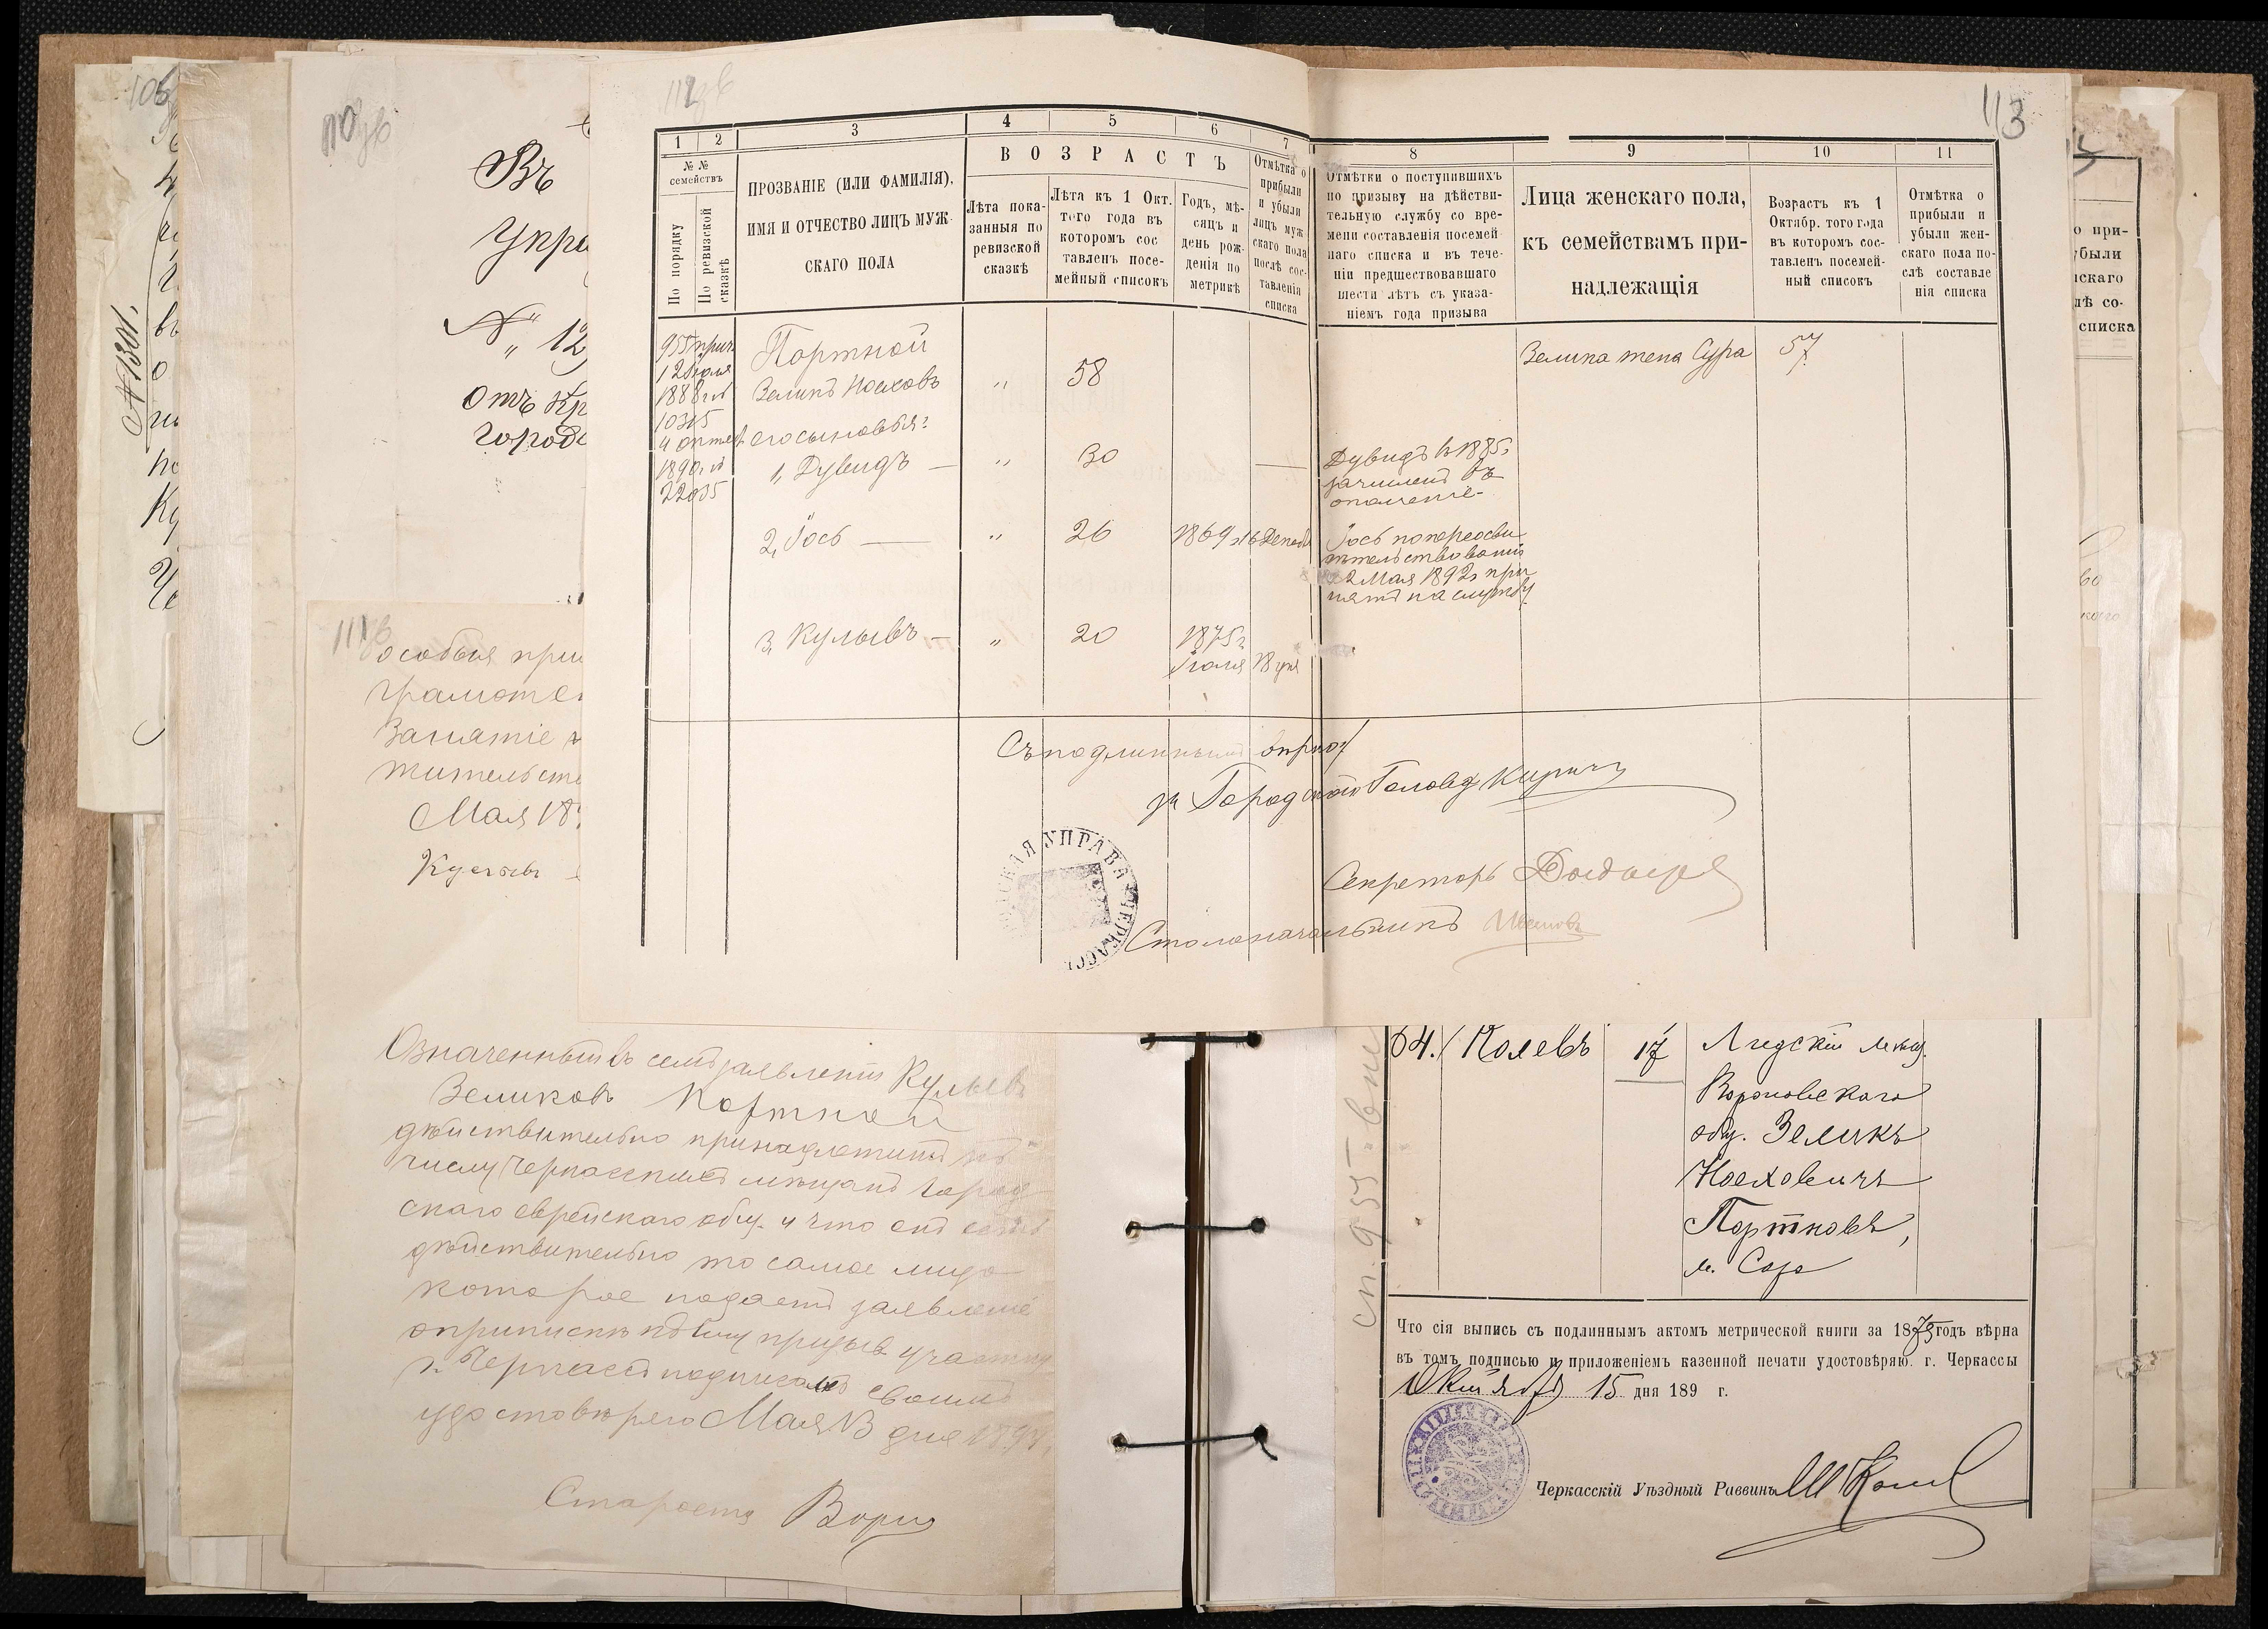 105
110
Въ
Упра
№ 12
Отъ Кр
Городс
№ 1301.
111
особыя прим
грамотен
Занятіе
жительств
Мая 18
Кульев
112
113
1 2 3 4 5 6 7 8 9 10 11
№ №
семействъ
По порядку
По ревизской сказкѣ
ПРОЗВАНІЕ (ИЛИ ФАМИЛІЯ),
ИМЯ И ОТЧЕСТВО ЛИЦЪ МУЖ-
СКАГО ПОЛА
ВОЗРАСТЪ
Лѣта пока-
занныя по
ревизской
сказкѣ
Лѣта къ 1 Окт.
того года въ
которомъ сос
тавленъ посе-
мейный списокъ
Годъ, мѣ-
сяцъ и
день рож-
денія по
метрикѣ
Отмѣтка о
прибыли
и убыли
лицъ муж
скаго пола
послѣ сос-
тавленія
списка
Отмѣтки о поступившихъ
по призыву на дѣйстви-
тельную службу со вре-
мени составленія посемей-
наго списка и въ тече-
ніи предшествовавшаго
шести лѣтъ съ указа-
ніемъ года призыва
Лица женскаго пола,
къ семействамъ при-
надлежащія
Возрастъ къ 1
Октябр. того года
въ которомъ сос-
тавленъ посемей-
ный списокъ
Отмѣтка о
прибыли и
убыли жен-
скаго пола по-
слѣ составле
нія списка
955 прич.
12 Іюля
1888 г. №
10315
4 октяб.
1890 г. №
22935
Портной
Зеликъ Ноеховъ " 58
Зелика жена Сура 57
его сыновья:
1, Дувидъ — " 30 —
Дувидъ въ 1885 г
зачисленъ въ
ополченіе-
2, Іось — " 26 1869 г 16 Декаб
Іось по переосви
тельствованіи
22 Мая 1892 г при
нятъ на службу
3, Кульевъ — " 20 1875 г. Іюля 18 дня
Съ подлиннымъ вѣрно:
за Городскаго Голову
Секретарь
Столоначальникъ Ивановъ
СКАЯ УПРАВА ЧЕРКАСС
о при-
убыли
нскаго
лѣ со-
списка
Означенный въ семъ заявленіи Кульевъ
Зеликовъ Портной
дѣйствительно принадлежитъ къ
числу Черкасскихъ мѣщанъ город
скаго еврейскаго общ. и что онъ есть
дѣйствительно то самое лицо
которое подаетъ заявленіе
о припискѣ къ призыв участку
г. Черкассъ подписомъ своимъ
удостовѣряю Мая 13 дня 189
Староста
сп. 955. вне
64. Колевъ 17 Лидскій мѣщ.
Вороновскаго
общ. Зеликъ
Ноеховичъ
Портновъ,
м. Сора
Что сія выпись съ подлиннымъ актомъ метрической книги за 1875 годъ вѣрна
въ томъ подписью и приложеніемъ казенной печати удостовѣряю. г. Черкассы
15 дня 189 г.
Черкасскій Уѣздный Раввинъ